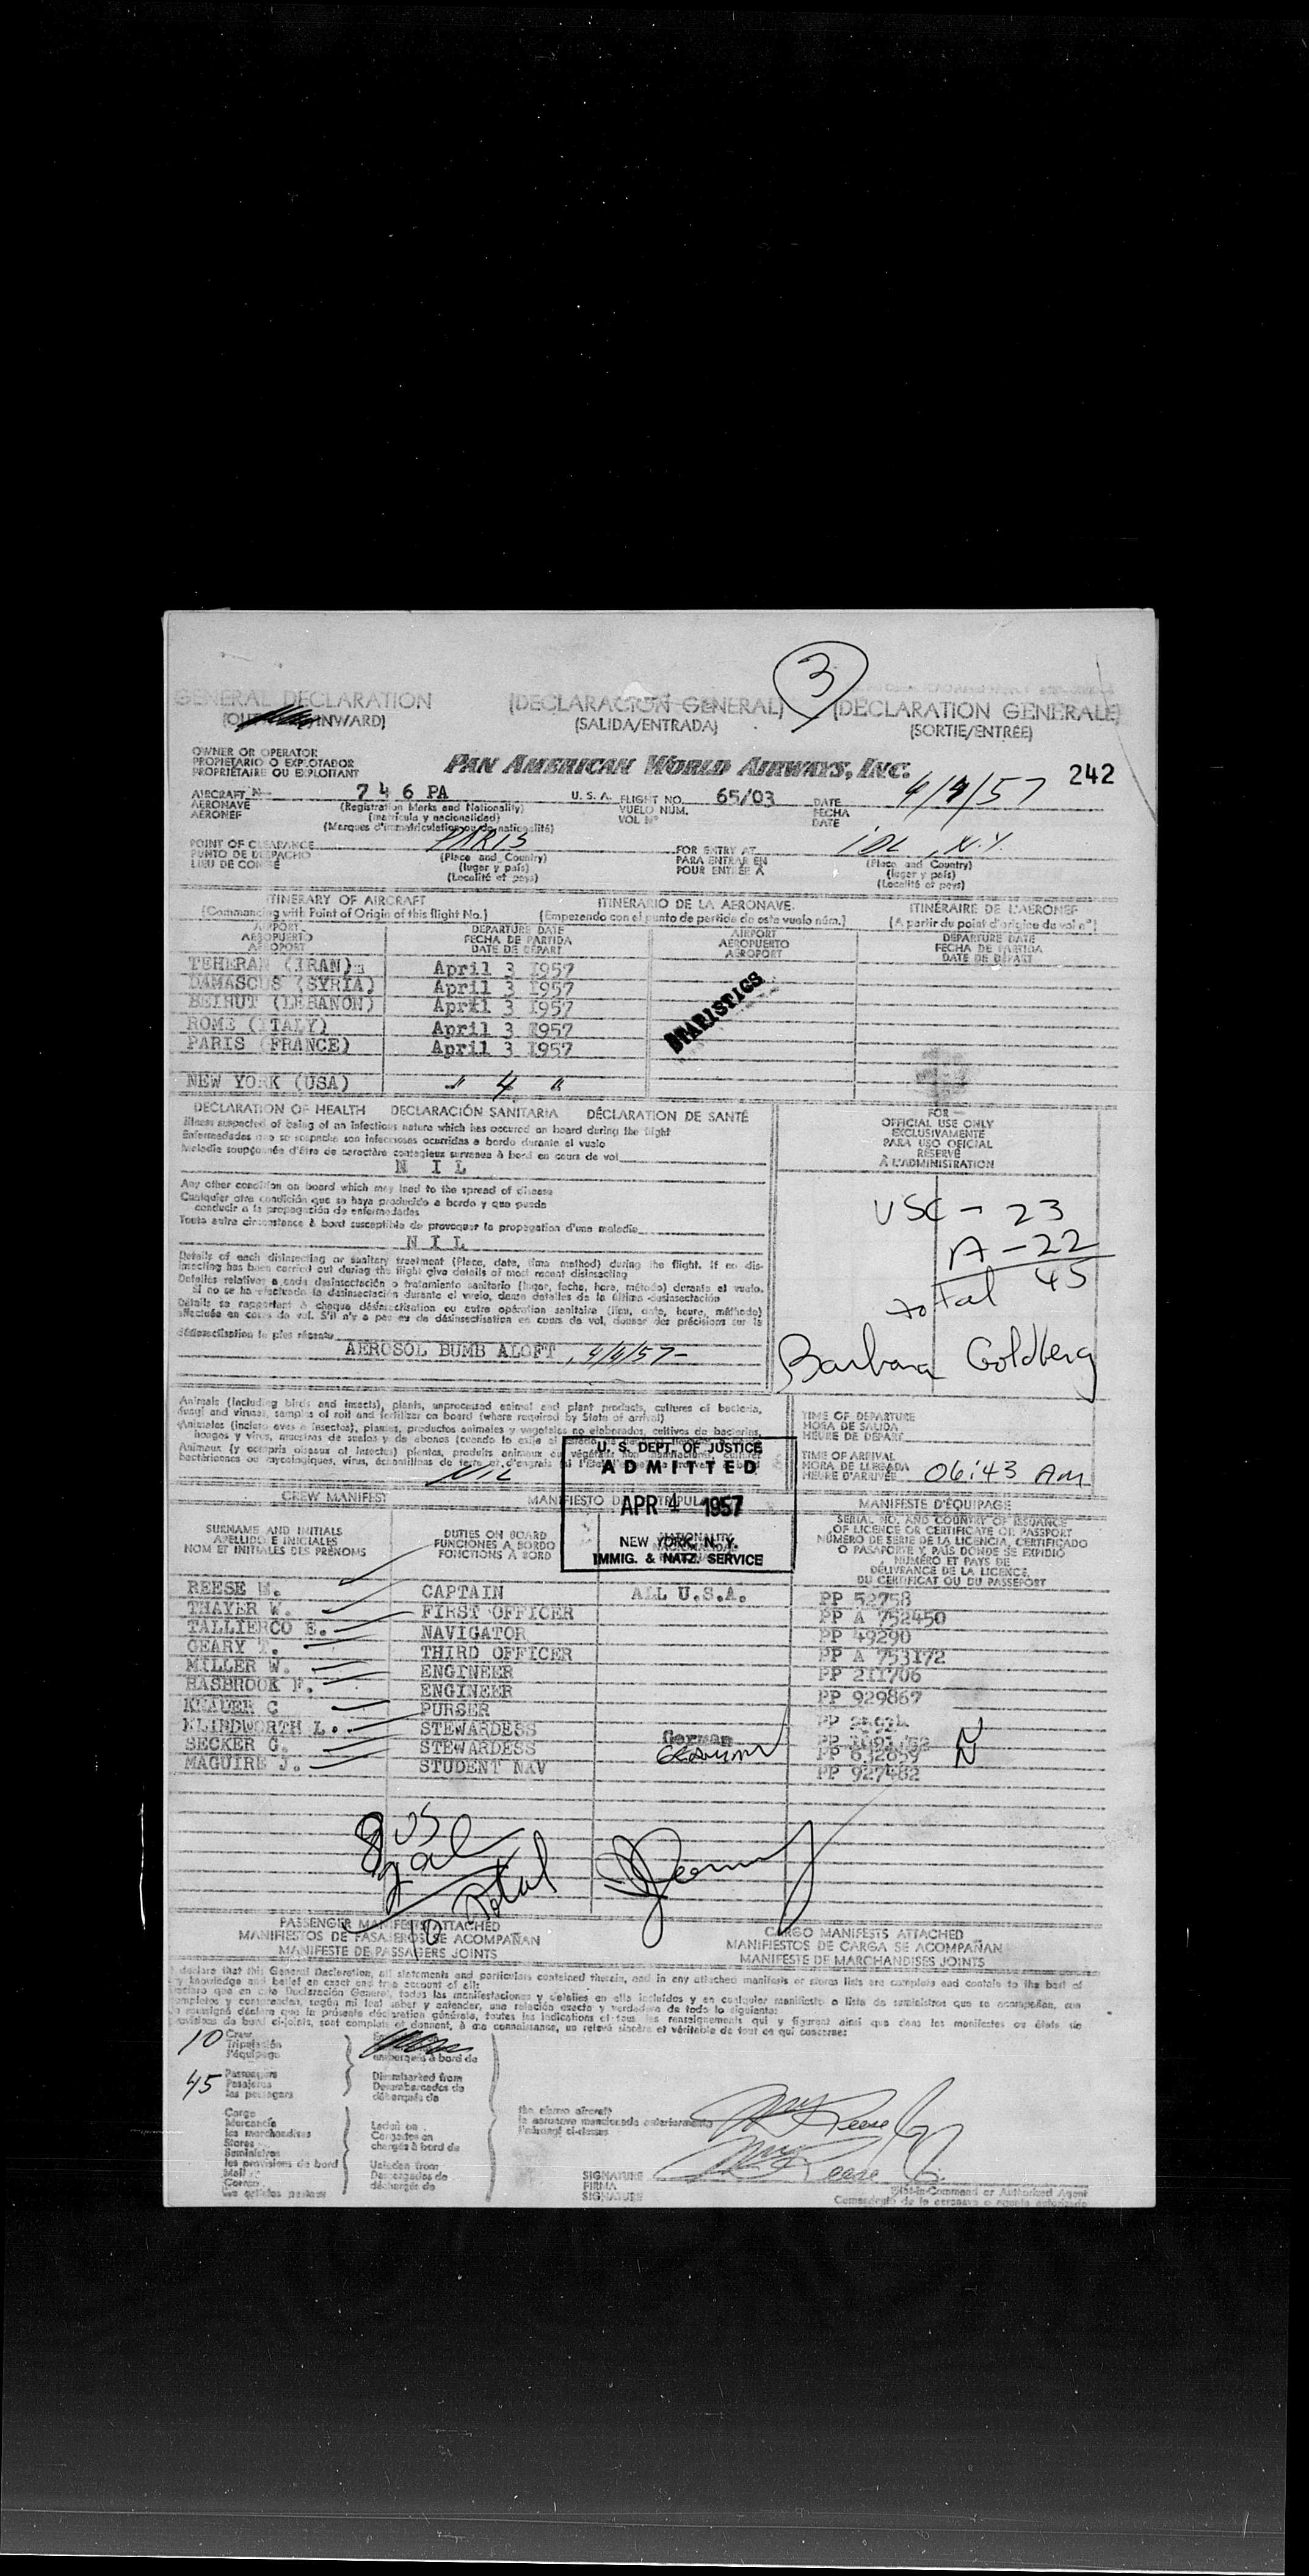 3
GENERAL DECLARATION (DECLARACION GENERAL) (DECLARATION GENERALE)
INWARD) (SALIDA/ENTRADA) (SORTIE/ENTREE)
OWNER OR OPERATOR
PROPIETARIO O EXPLOTADOR
PROPRIÉTAIRE OU EXPLOITANT
PAN AMERICAN WORLD AIRWAYS, INC.
242
AIRCRAFT N 746 PA U.S.A. FLIGHT NO. 65/03 DATE 4/4/57
AERONAVE (Registration Marks and Nationality) VUELO NUM. FECHA
AERONEF (matricula y nacionalidad) VOL Nº DATE
(Marques d'immatriculation ou de nationalité)
POINT OF CLEARANCE PARIS FOR ENTRY AT IDL, N.Y.
PUNTO DE DESPACHO (Place and Country) PARA ENTRAR EN (Place and Country)
LIEU DE CONGÉ (lugar y país) POUR ENTRÉE A (lugar y país)
(Localité et pays) (Localité et pays)
ITINERARY OF AIRCRAFT ITINERARIO DE LA AERONAVE ITINÉRAIRE DE L'AERONEF
(Commencing with Point of Origin of this flight No.) (Empezando con el punto de partida de este vuelo núm.) (A partir du point d'origine du vol nº)
AIRPORT DEPARTURE DATE AIRPORT DEPARTURE DATE
AEROPUERTO FECHA DE PARTIDA AEROPUERTO FECHA DE PARTIDA
AEROPORT DATE DE DÉPART AEROPORT DATE DE DÉPART
TEHERAN (IRAN) April 3 1957
DAMASCUS (SYRIA) April 3 1957
BEIRUT (LEBANON) April 3 1957
ROME (ITALY) April 3 1957
PARIS (FRANCE) April 3 1957
NEW YORK (USA) " 4 "
STATISTICS
DECLARATION OF HEALTH DECLARACIÓN SANITARIA DÉCLARATION DE SANTÉ
Illness suspected of being of an infectious nature which has occured on board during the flight
Enfermedades que se sospecha son infecciosas ocurridas a bordo durante el vuelo
Maladie soupçonnée d'être de caractère contagieux survenue à bord en cours de vol
N I L
Any other condition on board which may lead to the spread of disease
Cualquier otra condición que se haya producido a bordo y que pueda
conducir a la propagación de enfermedades
Toute autre circonstance à bord susceptible de provoquer la propagation d'une maladie
N I L
Details of each disinsecting or sanitary treatment (Place, date, time method) during the flight. If no dis-
insecting has been carried out during the flight give details of most recent disinsecting
Detalles relativos a cada desinsectación o tratamiento sanitario (lugar, fecha, hora, método) durante el vuelo.
Si no se ha efectuado la desinsectación durante el vuelo, dense detalles de la última desinsectación
Détails se rapportant à chaque désinsectisation ou autre opération sanitaire (lieu, date, heure, méthode)
effectuée en cours de vol. S'il n'y a pas eu de désinsectisation en cours de vol, donner des précisions sur la
désinsectisation la plus récente
AEROSOL BUMB ALOFT, 4/4/57
FOR
OFFICIAL USE ONLY
EXCLUSIVAMENTE
PARA USO OFICIAL
RÉSERVÉ
À L'ADMINISTRATION
USC - 23
A - 22
total 45
Barbara Goldberg
Animals (including birds and insects), plants, unprocessed animal and plant products, cultures of bacteria,
fungi and viruses, samples of soil and fertilizer on board (where required by State of arrival)
NIL
TIME OF DEPARTURE
HORA DE SALIDA
HEURE DE DEPART
TIME OF ARRIVAL
HORA DE LLEGADA
HEURE D'ARRIVÉE 06:43 AM
U. S. DEPT. OF JUSTICE
ADMITTED
APR 4 1957
NEW YORK, N. Y.
IMMIG. & NATZ. SERVICE
CREW MANIFEST MANIFIESTO MANIFESTE D'ÉQUIPAGE
SURNAME AND INITIALS DUTIES ON BOARD NATIONALITY SERIAL NO. AND COUNTRY OF ISSUANCE
APELLIDO E INICIALES FUNCIONES A BORDO OF LICENCE OR CERTIFICATE OR PASSPORT
NOM ET INITIALES DES PRÉNOMS FONCTIONS À BORD NÚMERO DE SERIE DE LA LICENCIA, CERTIFICADO
O PASAPORTE Y PAÍS DONDE SE EXPIDIÓ
NUMÉRO ET PAYS DE
DÉLIVRANCE DE LA LICENCE,
DU CERTIFICAT OU DU PASSEPORT
REESE CAPTAIN ALL U.S.A. PP 52758
THAYER W. FIRST OFFICER PP A 752450
TALLIERCO E. NAVIGATOR PP 49290
GEARY T. THIRD OFFICER PP A 753172
MILLER W. ENGINEER PP 211706
HASBROOK F. ENGINEER PP 929867
KNAUER C PURSER PP
KLINDWORTH L. STEWARDESS German PP N
BECKER G. STEWARDESS German PP 632659 N
MAGUIRE J. STUDENT NAV PP 927482
8 USC
2 al
10 Total
PASSENGER MANIFESTS ATTACHED CARGO MANIFESTS ATTACHED
MANIFIESTOS DE PASAJEROS SE ACOMPAÑAN MANIFIESTOS DE CARGA SE ACOMPAÑAN
MANIFESTE DE PASSAGERS JOINTS MANIFESTE DE MARCHANDISES JOINTS
I declare that this General Declaration, all statements and particulars contained therein, and in any attached manifests or stores lists are complete and contain to the best of
my knowledge and belief an exact and true account of all:
10 Crew
Tripulación
l'équipage
embarqués à bord de
45 Passengers Disembarked from
Pasajeros Desembarcados de
les passagers débarqués de
the above aircraft
la aeronave mencionada anteriormente
l'aéronef ci-dessus
Cargo
Mercancía Laden on
les marchandises Cargados en
Stores chargés à bord de
Suministros
les provisions de bord Unladen from
Mail Descargados de
Correo déchargés de
SIGNATURE
FIRMA
SIGNATURE
Pilot-in-Command or Authorized Agent
Comandante de la aeronave o agente autorizado